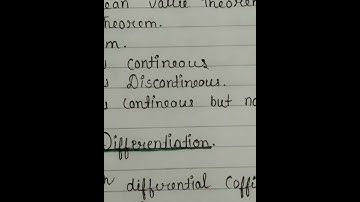 ean value Theorem
heorem.
m.
contineous
Discontineous.
contineous but no
Differentiation.
differential Coffi